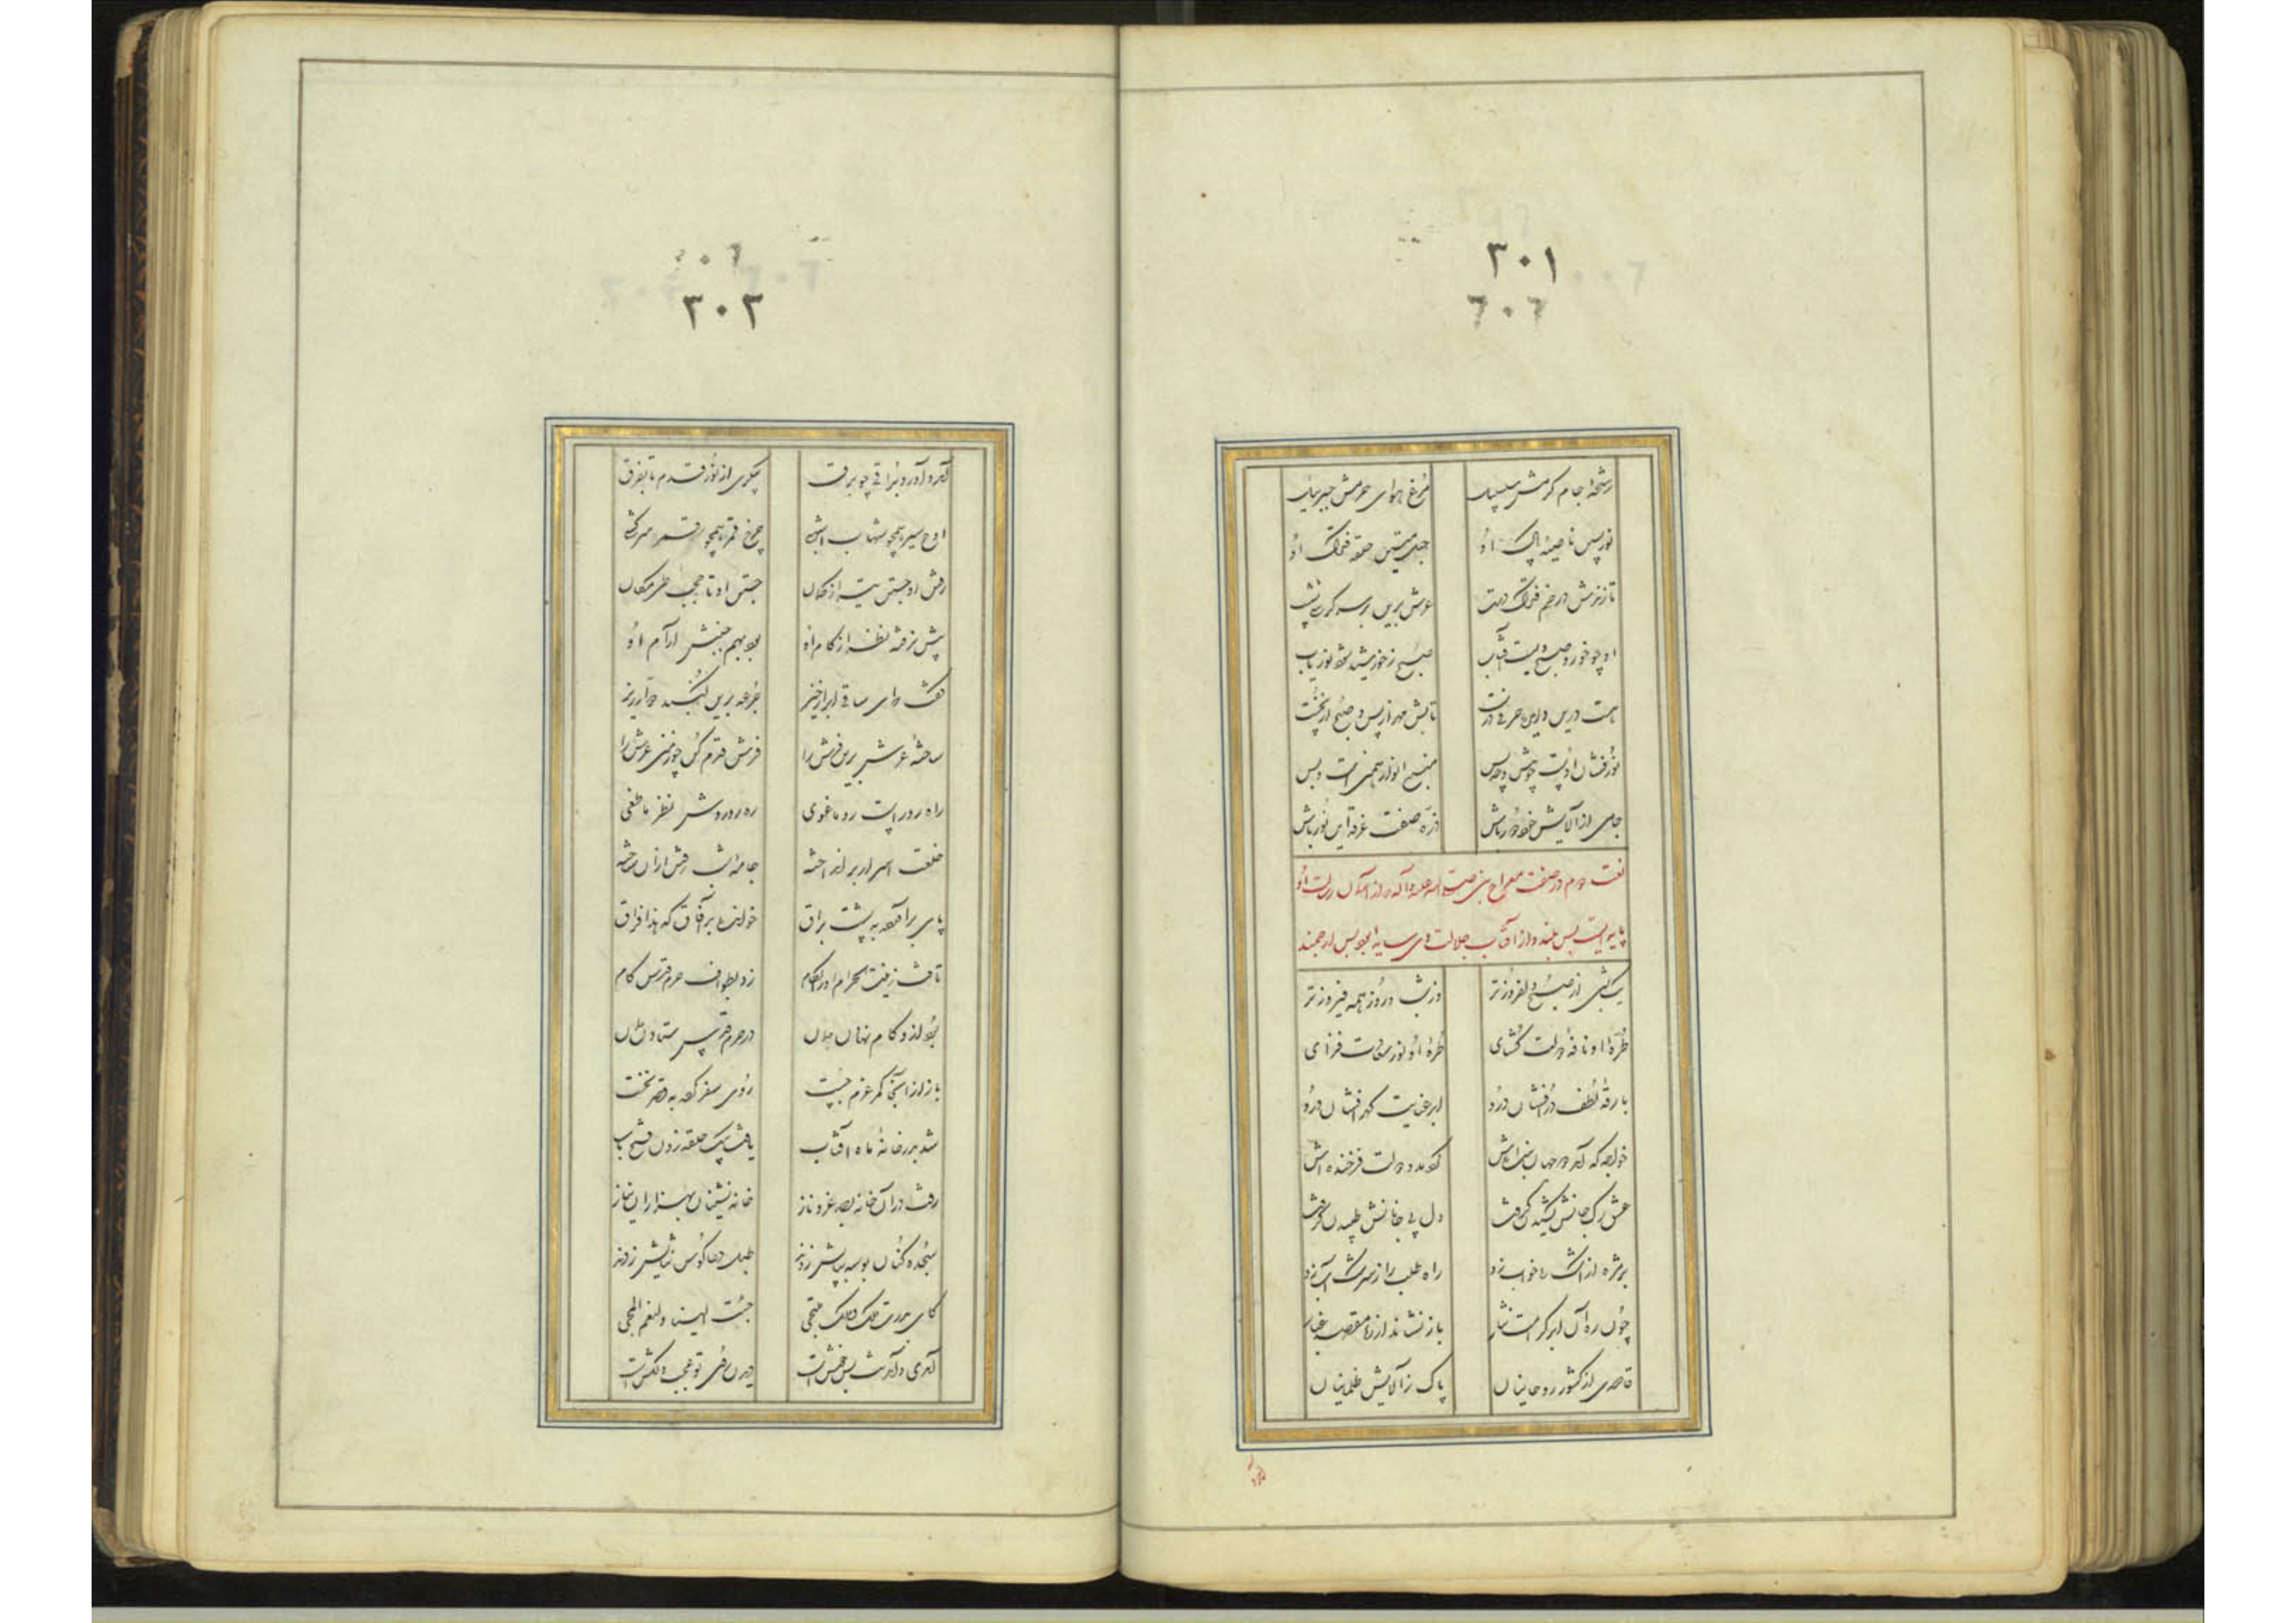 ٣٠١
رشحهٔ جام کرمش سلسبیل مرغ هوای حرمش جبرئیل
نور ناصیهٔ پاک او حبل متین حلقه فتراک او
تا زندش در خم فتراک دست عرش برین بر سر کرسی نشست
او چو خور و صبح ویست آفتاب صبح ز خورشید شود نور یاب
تابش مهر از پس و صبح از نخست
نورفشان اوست چه پیش و چه پس منبع انوار همین است و بس
جامی از آلایش خود دور باش ذره صفت غرقه این نور باش
نعت دوم در صفت معراج نبی صلی الله علیه و آله که از آسمان رسالت او
پایه ایست بس بلند و از آفتاب جلالت وی سایه بس ارجمند
یک شبی از صبح دلفروزتر وز شب و روز همه فیروزتر
طرهٔ او نافهٔ دولت گشای غرهٔ او نور سعادت فزای
بارقهٔ لطف درافشان درو ابر عنایت گهر افشان درو
خواجه که آمد دو جهان بنده اش آمده دولت فرخنده اش
عشق رگ جانش کشیدن گرفت دل پی جانانش طپیدن گرفت
بر مژه از اشک ره خواب زد راه طلب را ز سرشک آب زد
چون ره آن ابر کرامت نثار باز نشاند از ره مقصد غبار
قاصدی از کشور روحانیان پاک ز آلایش ظلمانیان
٣٠٢
آمد و آورد براقی چو برق پیکری از نور قدم تا بفرق
اوج سیر همچو شهاب آتشی چرخ قمر همچو سرکشی
رفتن او جستن تیر از کمان جستن او تا طی مکان
پیش نرفته نظر از گام او بود بهم جنبش آرام او
گفت که ای ساقی ابرار خیز جرعه برین گنبد دوار ریز
ساخته عرش برین فرش را فرش قدم کن چو زمین عرش را
راه رو راست رو ما غوی ره رو روشن نظر ما طغی
خلعت اسرار بر انداخته
پای برآورده به پشت براق خواند بر آفاق که هذا فراق
تافت ز بیت الحرام زد بطواف حرم قدس گام
باز از آنجا کمر عزم چست روی سفر کرد به قصر نخست
شد بدر خانهٔ ماه آفتاب یافت بیک حلقه زدن فتح باب
رفت در آن خانه بصد عز و ناز خانه نشینان به هزاران نیاز
سجده کنان بوسه بپایش زدند طبل دعا کوس ثنایش زدند
کای بدرت ملک و ملک ملتجی جئت الینا و لنعم المجی
آمدی و آمدنت بس خوش است دیدن روی تو عجب دلکش است